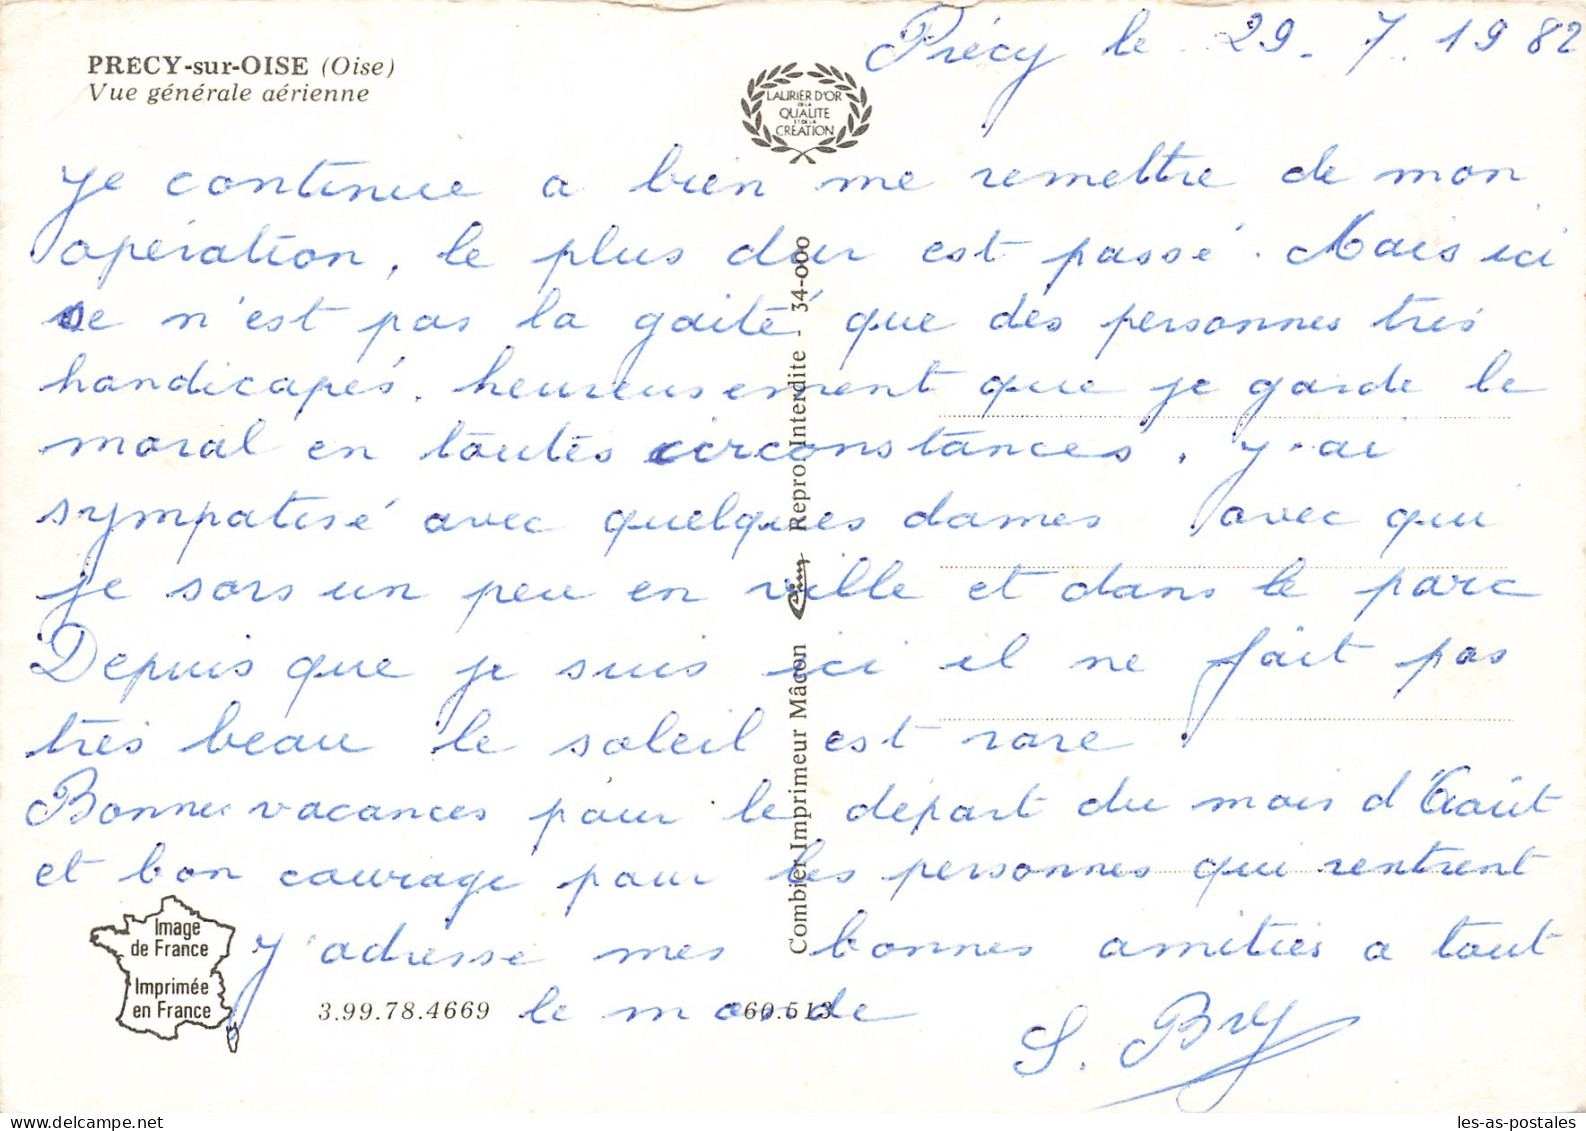 Précy le 29-7.1982
PRECY-sur-OISE (Oise)
Vue générale aérienne
LAURIER D'OR
DE LA
QUALITE
ET DE LA
CREATION
Je continue a bien me remettre de mon
opération, le plus dur est passé. Mais ici
ce n'est pas la gaité que des personnes tres
handicapés. heureusement que je garde le
moral en toutes circonstances. J'ai
sympatisé avec quelques dames avec qui
je sors un peu en ville et dans le parc
Depuis que je suis ici il ne fait pas
très beau le soleil est rare.
Bonnes vacances pour le départ du mois d'Août
et bon courage pour les personnes qui rentrent
J'adresse mes bonnes amitiés a tout
le monde
S. Bry
Combier Imprimeur Mâcon Cim Repro. Interdite - 34-000
Image
de France
Imprimée
en France
3.99.78.4669
60.513
les-as-postales